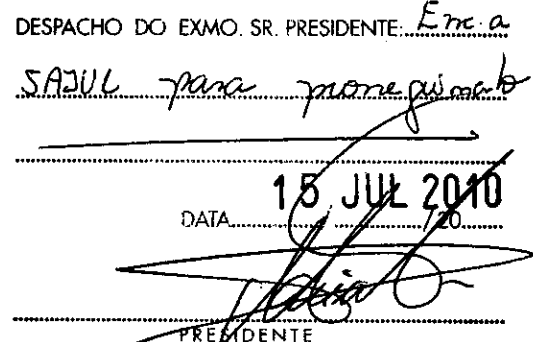 DESPACHO DO EXMO. SR. PRESIDENTE: Enc. a
SAJUL para prosseguimento
15 JUL 2010
DATA ............ /20 ......
PRESIDENTE